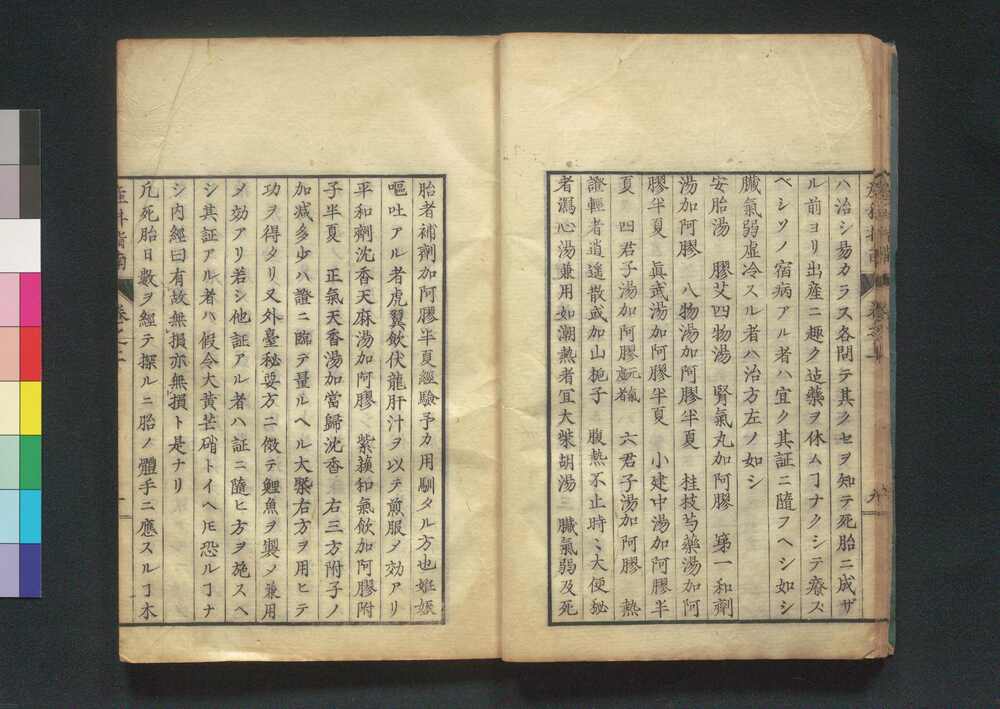 ハ治シ易カラス各問テ其クセヲ知テ死胎ニ成ザ
ル前ヨリ出産ニ趣ク迠藥ヲ休ムヿナクシテ療ズ
ベシソノ宿病アル者ハ宜ク其証ニ隨フヘシ如シ
臓氣弱虚冷スル者ハ治方左ノ如シ
安胎湯　膠艾四物湯　腎氣丸加阿膠　第一和劑
湯加阿膠　八物湯加阿膠半夏　桂枝芍藥湯加阿
膠半夏　眞武湯加阿膠半夏　小建中湯加阿膠半
夏　四君子湯加阿膠　六君子湯加阿膠　熱
證輕者逍遥散或加山梔子　腹熱不止時〻大便秘
者瀉心湯兼用如潮熱者宜大柴胡湯　臓氣弱及死
胎者補劑加阿膠半夏經驗予カ用馴タル方也姙娠
嘔吐アル者虎翼飲伏龍肝汁ヲ以テ煎服メ効アリ
平和劑沈香天麻湯加阿膠　紫蘓和氣飲加阿膠附
子半夏　正氣天香湯加當歸沈香　右三方附子ノ
加减多少ハ證ニ臨テ量ルヘル大槩右方ヲ用ヒテ
功ヲ得タリ又外臺秘要方ニ傚テ鯉魚ヲ製メ兼用
メ効アリ若シ他証アル者ハ証ニ隨ヒ方ヲ施スヘ
シ其証アル者ハ假令大黄芒硝トイヘ𪜈恐ルヿナ
シ内經曰有故無損亦無損ト是ナリ
凢死胎日數ヲ經テ探ルニ胎ノ體手ニ應スルヿ木